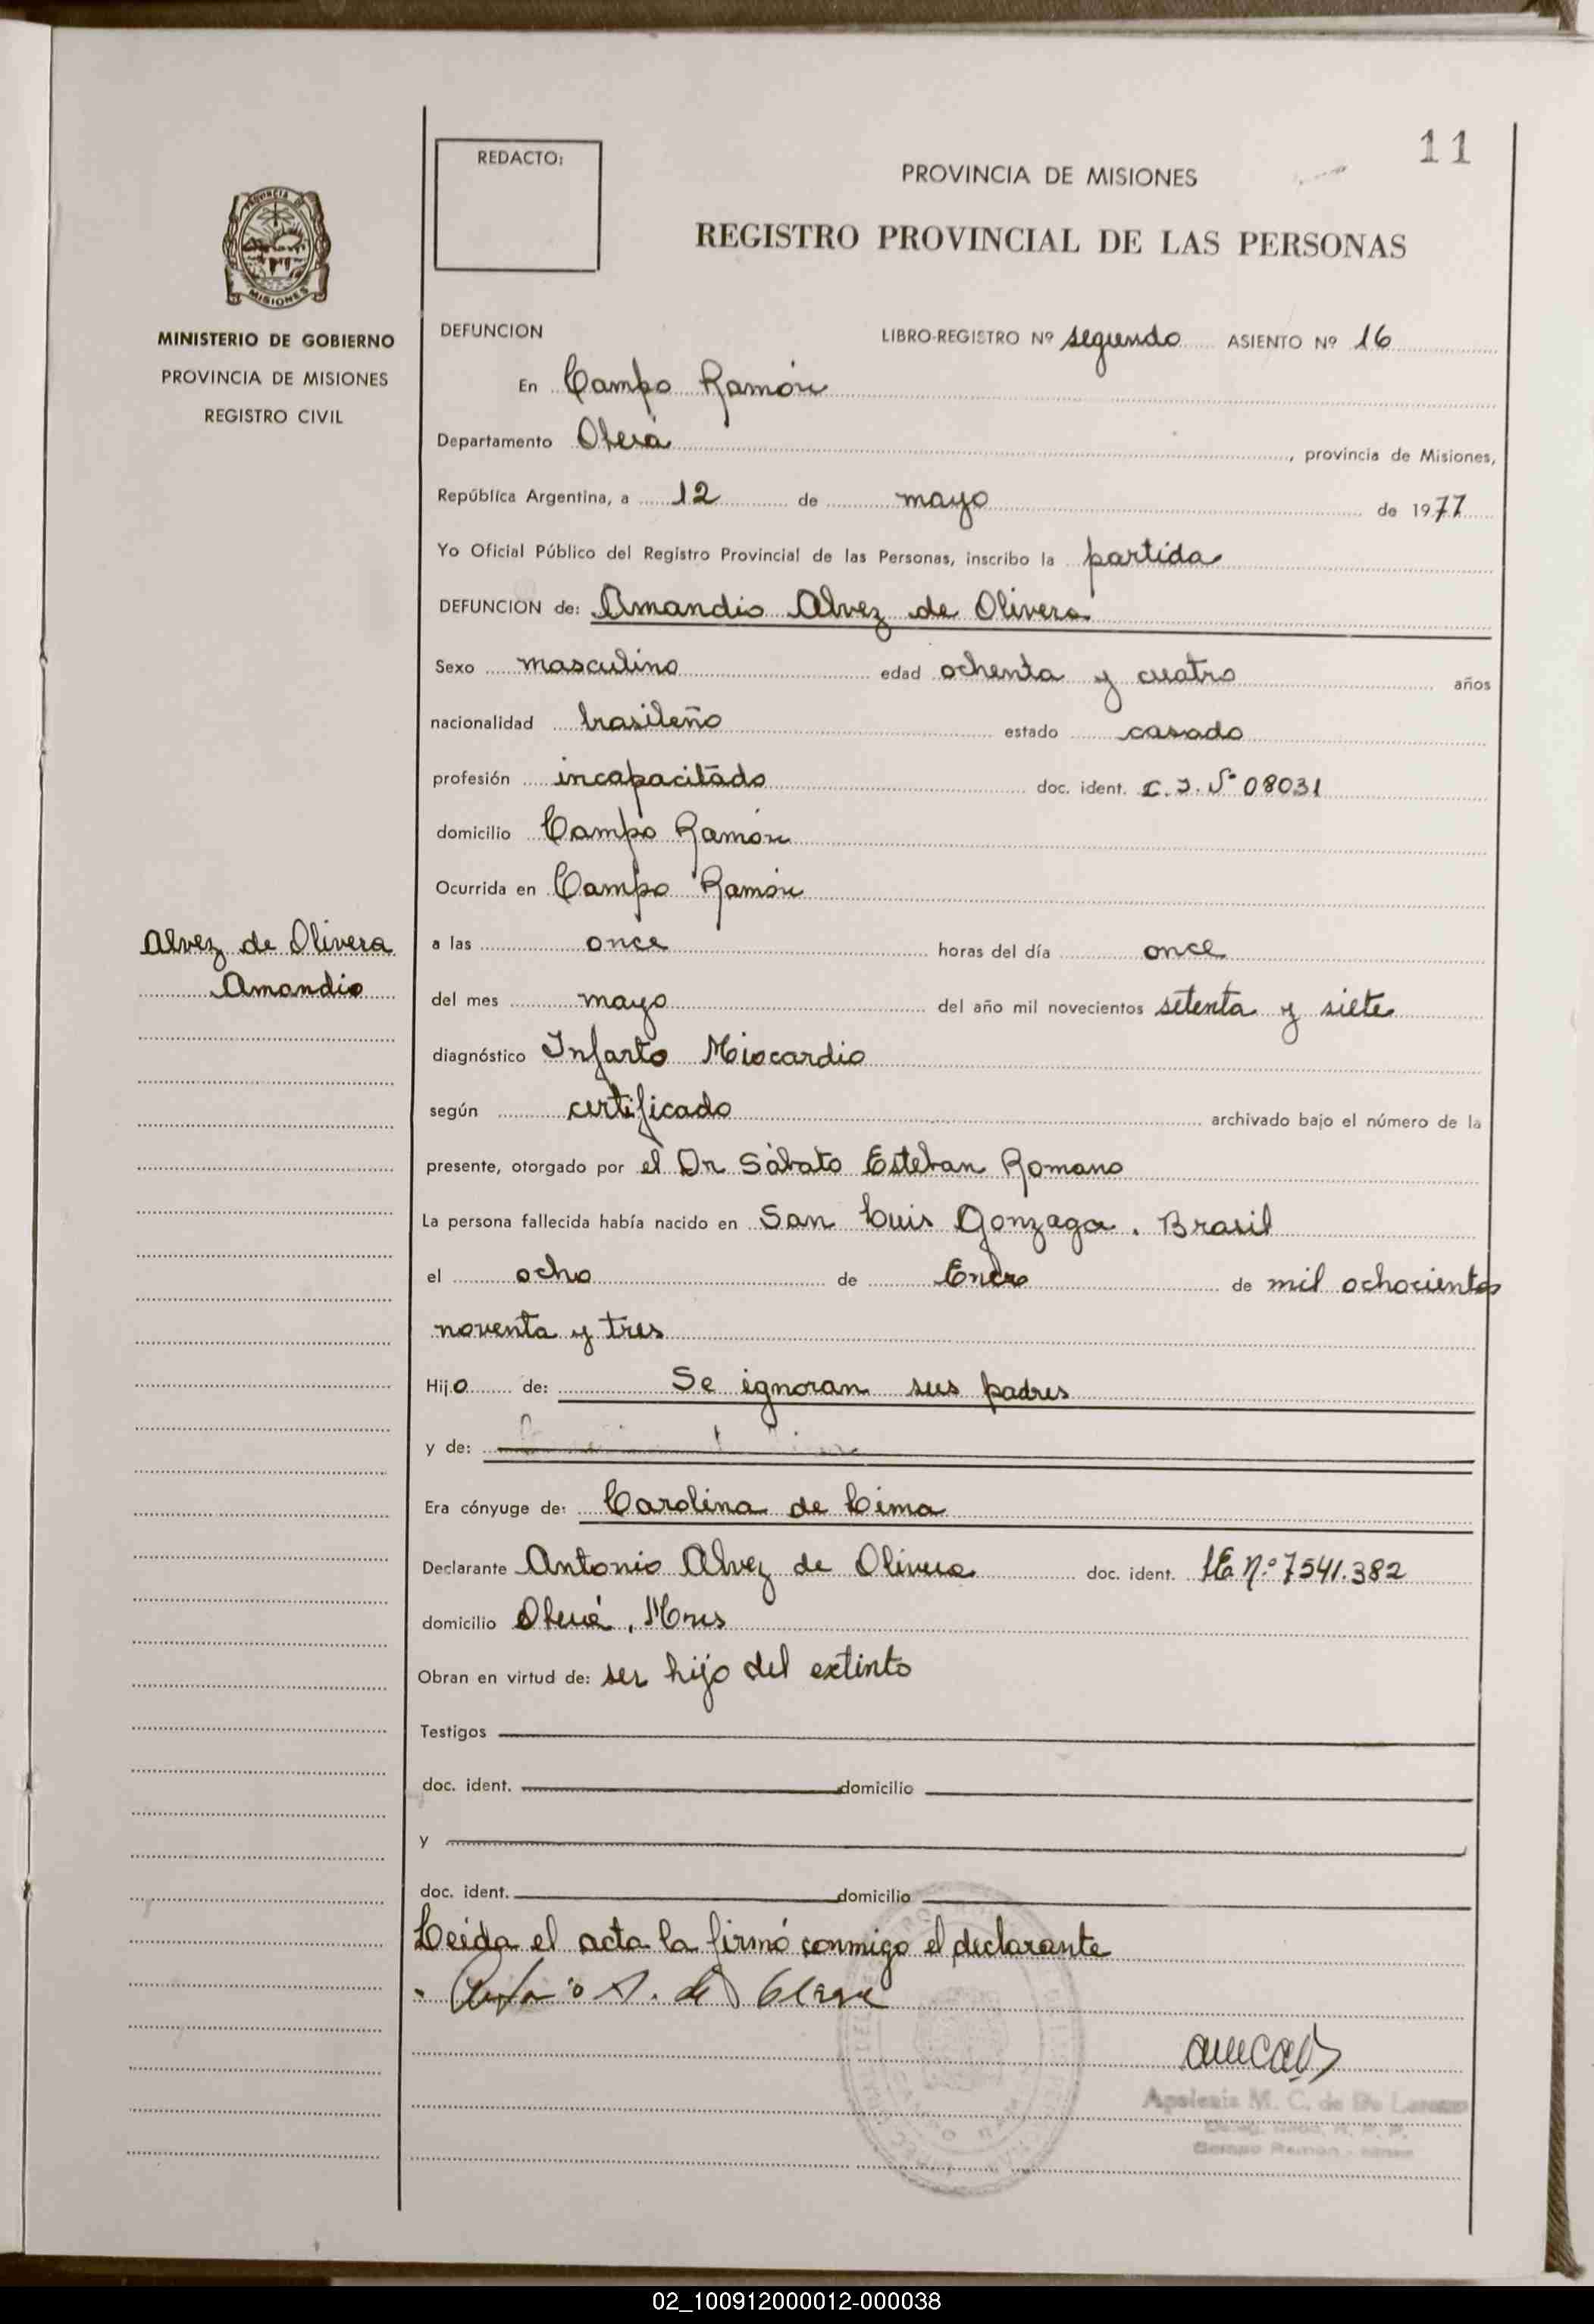 11
REDACTO:
PROVINCIA DE MISIONES
REGISTRO PROVINCIAL DE LAS PERSONAS
PROVINCIA DE
MISIONES
MINISTERIO DE GOBIERNO
PROVINCIA DE MISIONES
REGISTRO CIVIL
DEFUNCION LIBRO-REGISTRO Nº segundo ASIENTO Nº 16
En Campo Ramón
Departamento Oberá, provincia de Misiones,
República Argentina, a 12 de mayo de 1977
Yo Oficial Público del Registro Provincial de las Personas, inscribo la partida
DEFUNCION de: Amandio Alvez de Olivera
Sexo masculino edad ochenta y cuatro años
nacionalidad brasileño estado casado
profesión incapacitado doc. ident. C.I. Nº 08031
domicilio Campo Ramón
Ocurrida en Campo Ramón
Alvez de Olivera
Amandio
a las once horas del día once
del mes mayo del año mil novecientos setenta y siete
diagnóstico Infarto Miocardio
según certificado archivado bajo el número de la
presente, otorgado por el Dr Sábato Esteban Romano
La persona fallecida había nacido en San Luis Gonzaga. Brasil
el ocho de Enero de mil ochocientos
noventa y tres
Hijo de: Se ignoran sus padres
y de:
Era cónyuge de: Carolina de Lima
Declarante Antonio Alvez de Olivera doc. ident. LE Nº 7541.382
domicilio Oberá, Mnes
Obran en virtud de: ser hijo del extinto
Testigos
doc. ident. domicilio
y
doc. ident. domicilio
Leída el acta la firmó conmigo el declarante
Apolonia M. C. de De Lorenzo
Campo Ramón
02_100912000012-000038